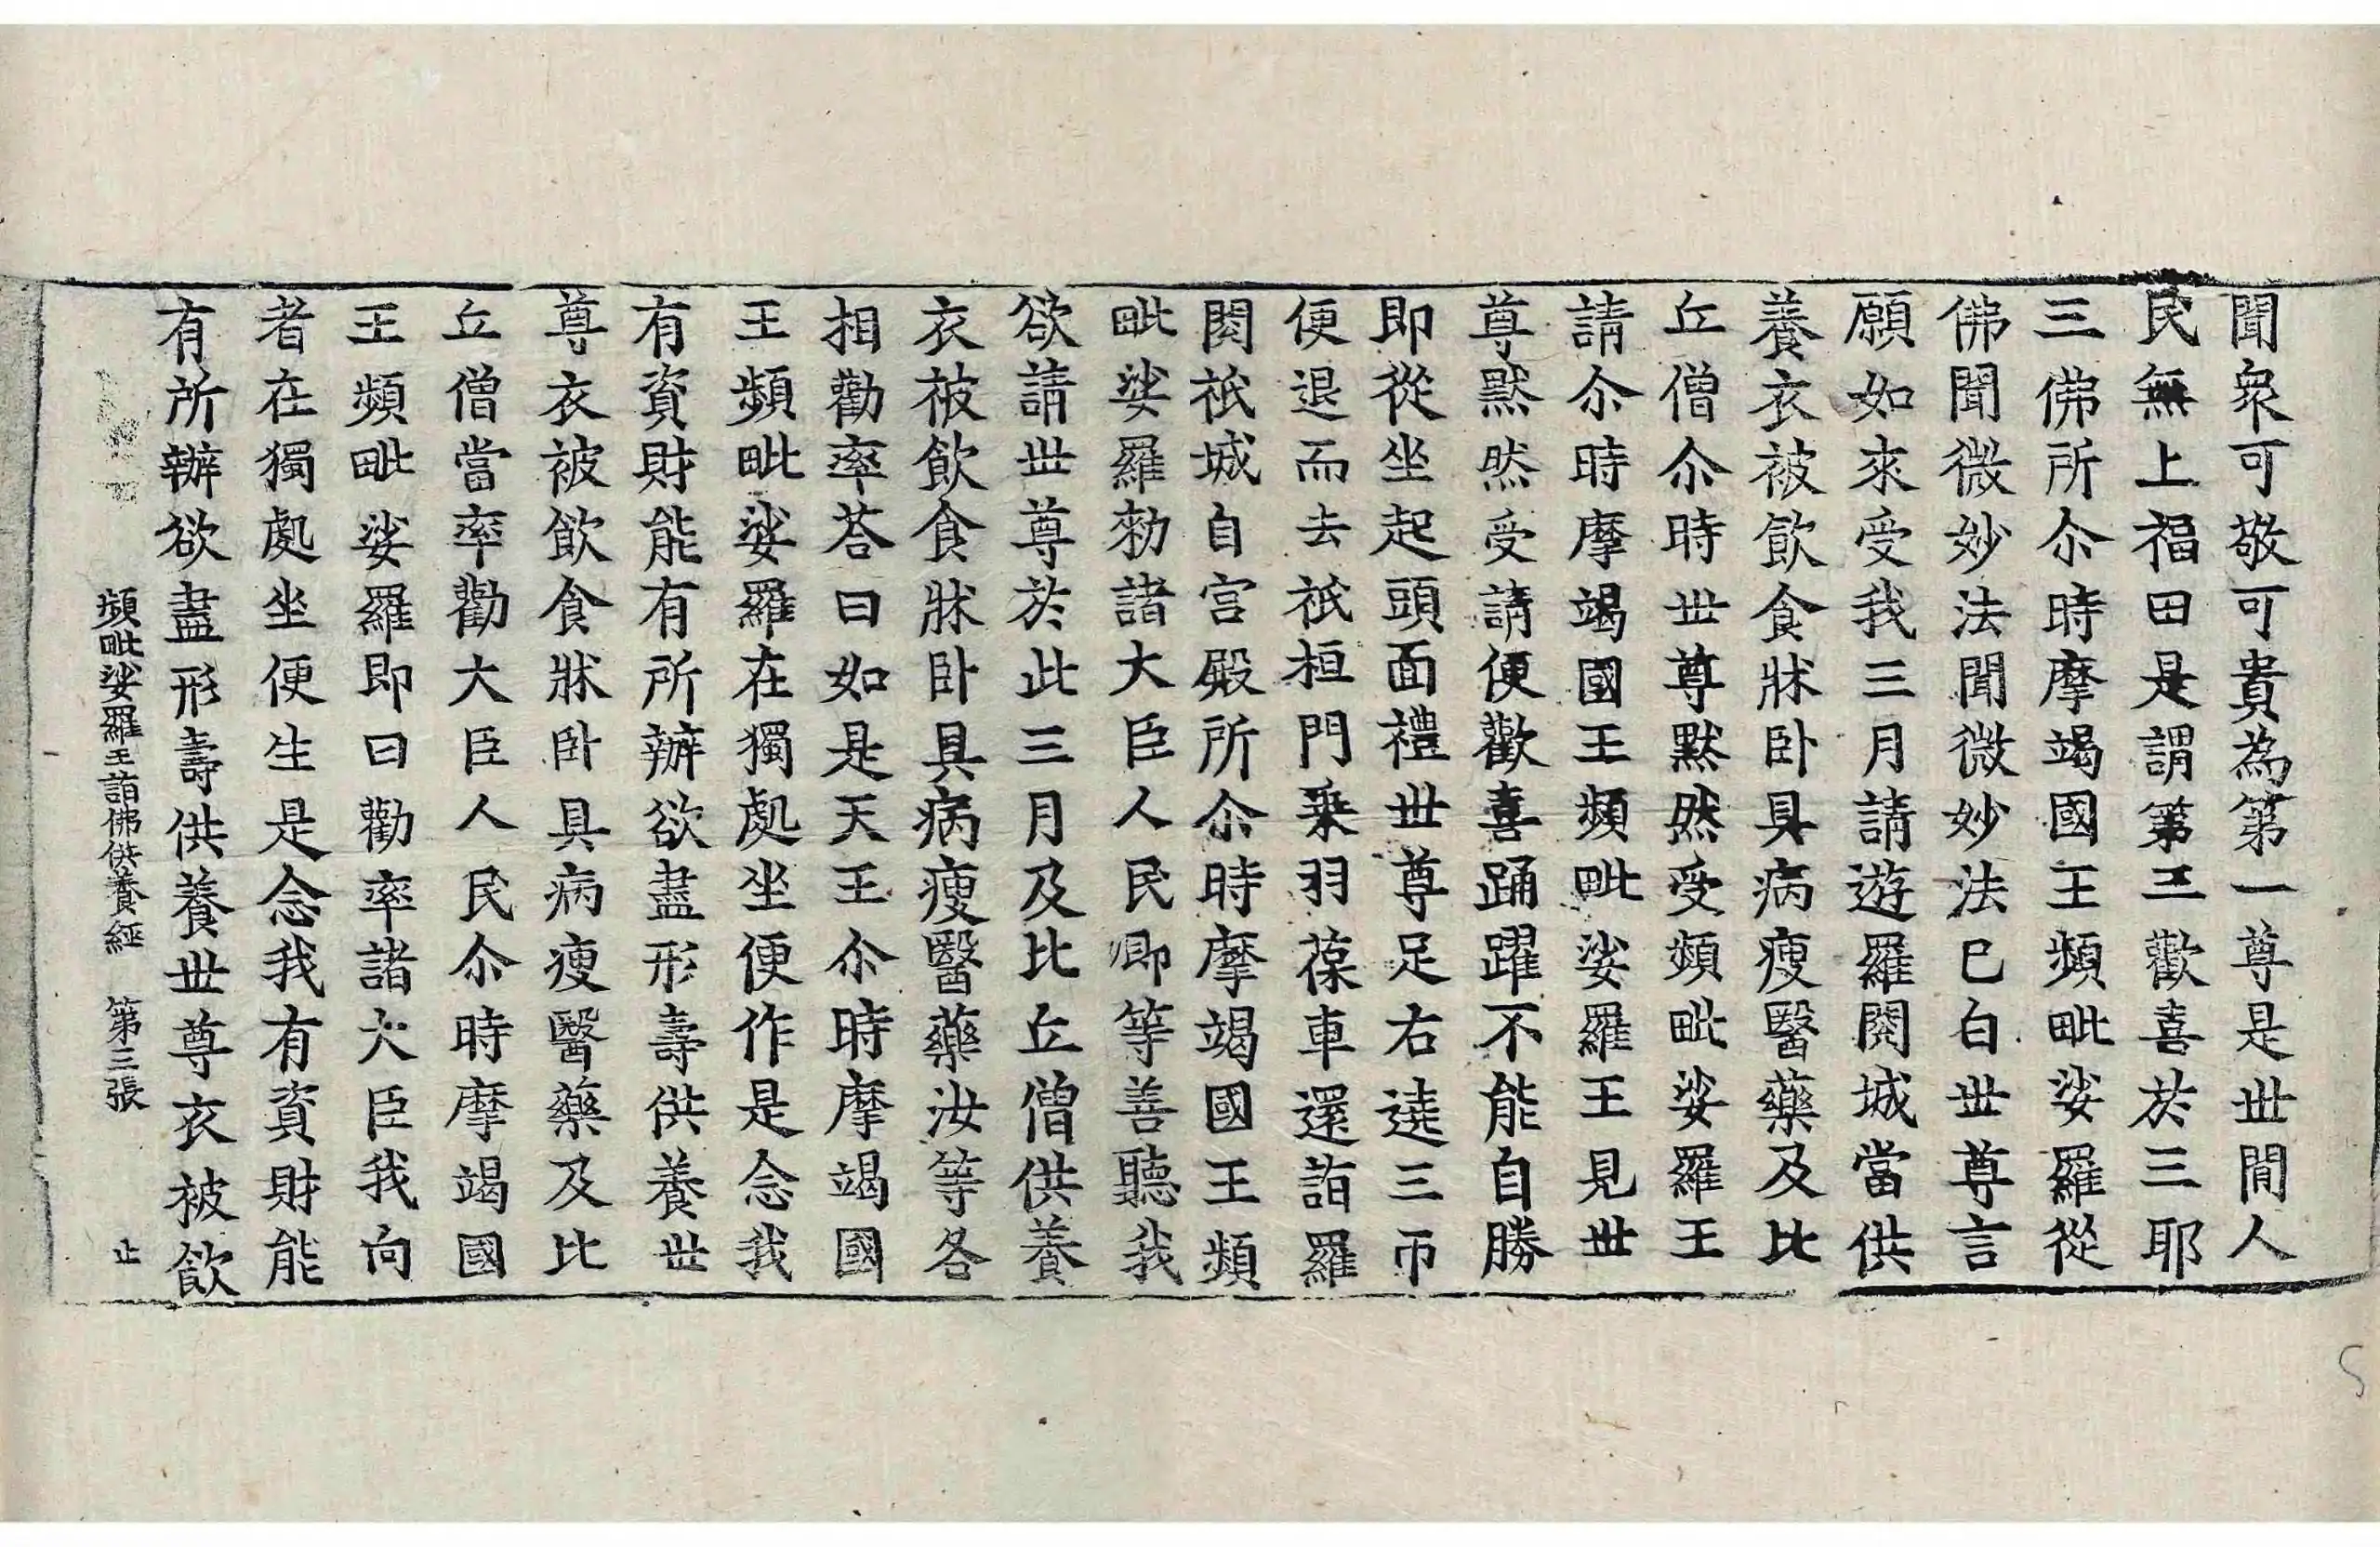 聞衆可敬可貴為第一尊是丗閒人
民無上福田是謂第三歡喜於三耶
三佛所尒時摩竭國王頻毗娑羅從
佛聞微妙法聞微妙法已白丗尊言
願如來受我三月請遊羅閱城當供
養衣被飲食牀卧具病瘦醫藥及比
丘僧尒時丗尊默然受頻毗娑羅王
請尒時摩竭國王頻毗娑羅王見丗
尊默然受請便歡喜踊躍不能自勝
即從坐起頭面禮丗尊足右遶三帀
便退而去祇桓門乗羽葆車還詣羅
閱祇城自宫殿所尒時摩竭國王頻
毗娑羅勑諸大臣人民卿等善聽我
欲請丗尊於此三月及比丘僧供養
衣被飲食牀卧具病瘦醫藥汝等各
相勸率荅曰如是天王尒時摩竭國
王頻毗娑羅在獨處坐便作是念我
有資財能有所辦欲盡形壽供養丗
尊衣被飲食牀卧具病瘦醫藥及比
丘僧當率勸大臣人民尒時摩竭國
王頻毗娑羅即曰勸率諸大臣我向
者在獨處坐便生是念我有資財能
有所辦欲盡形壽供養丗尊衣被飲
頻毗娑羅王詣佛供養經 第三張 止